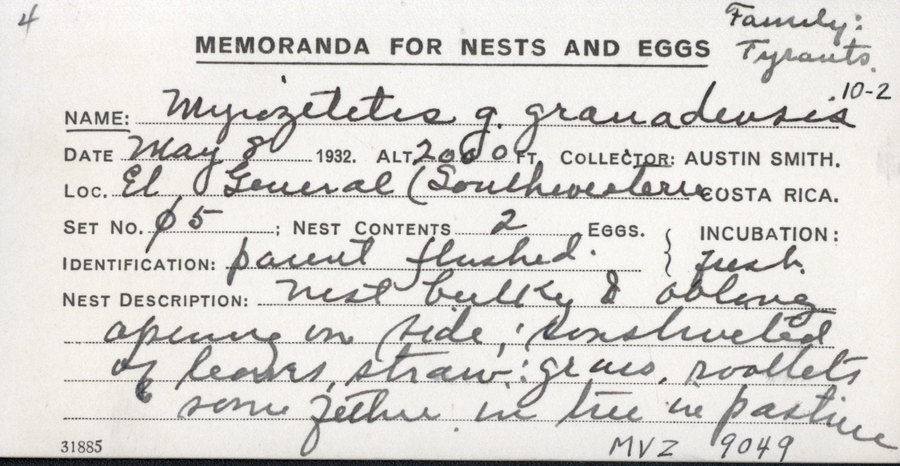 4
Family:
Tyrants.
MEMORANDA FOR NESTS AND EGGS
10-2
NAME: Myiozetetes g. granadensis
DATE May 8 1932. ALT. 2000 FT. COLLECTOR: AUSTIN SMITH.
LOC. El General (Southwestern COSTA RICA.
SET NO. 05; NEST CONTENTS 2 EGGS. INCUBATION:
IDENTIFICATION: parent flushed. fresh.
NEST DESCRIPTION: nest bulky & oblong
opening on side; constructed
of leaves, straw, grass, rootlets
& some in tree in pasture
31885
MVZ 9049